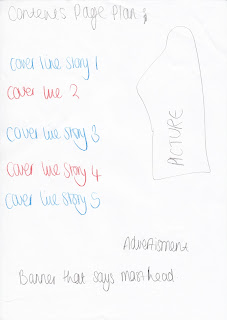 Contents Page Plan:
Cover line story 1
Cover line 2
Cover line story 3
Cover line story 4
Cover line story 5
PICTURE
Advertisment
Banner that says masthead